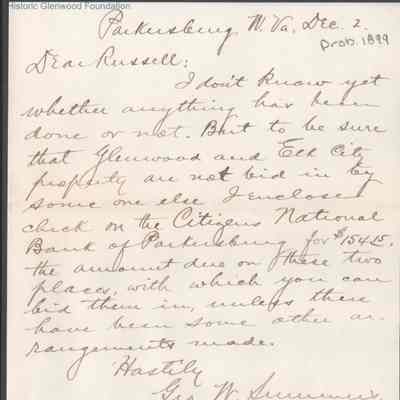 Historic Glenwood Foundation
Parkersburg, W. Va, Dec. 2.
Prob. 1899
Dear Russell:
I don't know yet
whether anything has been
done or not. But to be sure
that Glenwood and Elk City
property are not bid in by
some one else I enclose
check on the Citizens National
Bank of Parkersburg for $154.15.
the amount due on these two
places, with which you can
bid them in, unless there
have been some other ar-
rangements made.
Hastily
Geo. W. Summers